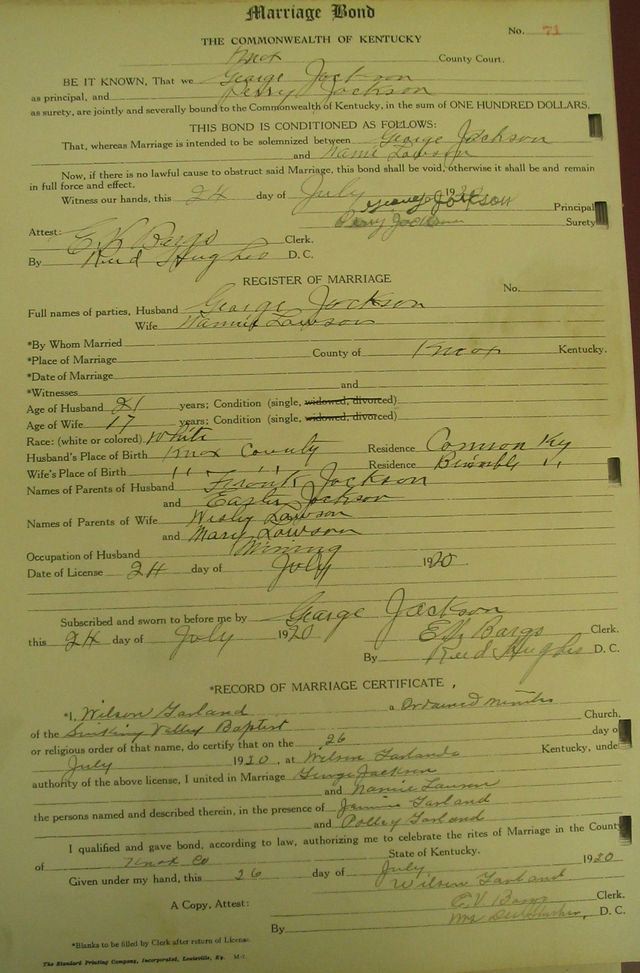 Marriage Bond
No. 71
THE COMMONWEALTH OF KENTUCKY
Knox County Court.
BE IT KNOWN, That we George Jackson
as principal, and Perry Jackson
as surety, are jointly and severally bound to the Commonwealth of Kentucky, in the sum of ONE HUNDRED DOLLARS.
THIS BOND IS CONDITIONED AS FOLLOWS:
That, whereas Marriage is intended to be solemnized between George Jackson
and Nannie Lawson
Now, if there is no lawful cause to obstruct said Marriage, this bond shall be void, otherwise it shall be and remain
in full force and effect.
Witness our hands, this 24 day of July 1920
George Jackson Principal
Perry Jackson Surety
Attest:
Clerk.
By Reed Hughes D. C.
REGISTER OF MARRIAGE
No.
Full names of parties, Husband George Jackson
Wife Nannie Lawson
*By Whom Married
*Place of Marriage County of Knox Kentucky.
*Date of Marriage
*Witnesses and
Age of Husband 21 years; Condition (single, widowed, divorced)
Age of Wife 17 years; Condition (single, widowed, divorced)
Race: (white or colored) White
Husband's Place of Birth Knox County Residence Ky
Wife's Place of Birth " " Residence Brimble "
Names of Parents of Husband Frank Jackson
and Jackson
Names of Parents of Wife Wesly Lawson
and Mary Lawson
Occupation of Husband Mining
Date of License 24 day of July 1920
Subscribed and sworn to before me by George Jackson
this 24 day of July 1920 Clerk.
By Reed Hughes D. C.
*RECORD OF MARRIAGE CERTIFICATE.
*I, Wilson Garland a Ordained Minister
of the Sinking Valley Baptist Church,
or religious order of that name, do certify that on the 26 day of
July 1920, at Wilson Garlands Kentucky, under
authority of the above license, I united in Marriage George Jackson
and Nannie Lawson
the persons named and described therein, in the presence of Jennie Garland
and Polley Garland
I qualified and gave bond, according to law, authorizing me to celebrate the rites of Marriage in the County
of Knox Co State of Kentucky.
Given under my hand, this 26 day of July 1920
Wilson Garland
A Copy, Attest: Clerk.
By Mrs D. C.
*Blanks to be filled by Clerk after return of License.
The Standard Printing Company, Incorporated, Louisville, Ky. M-1